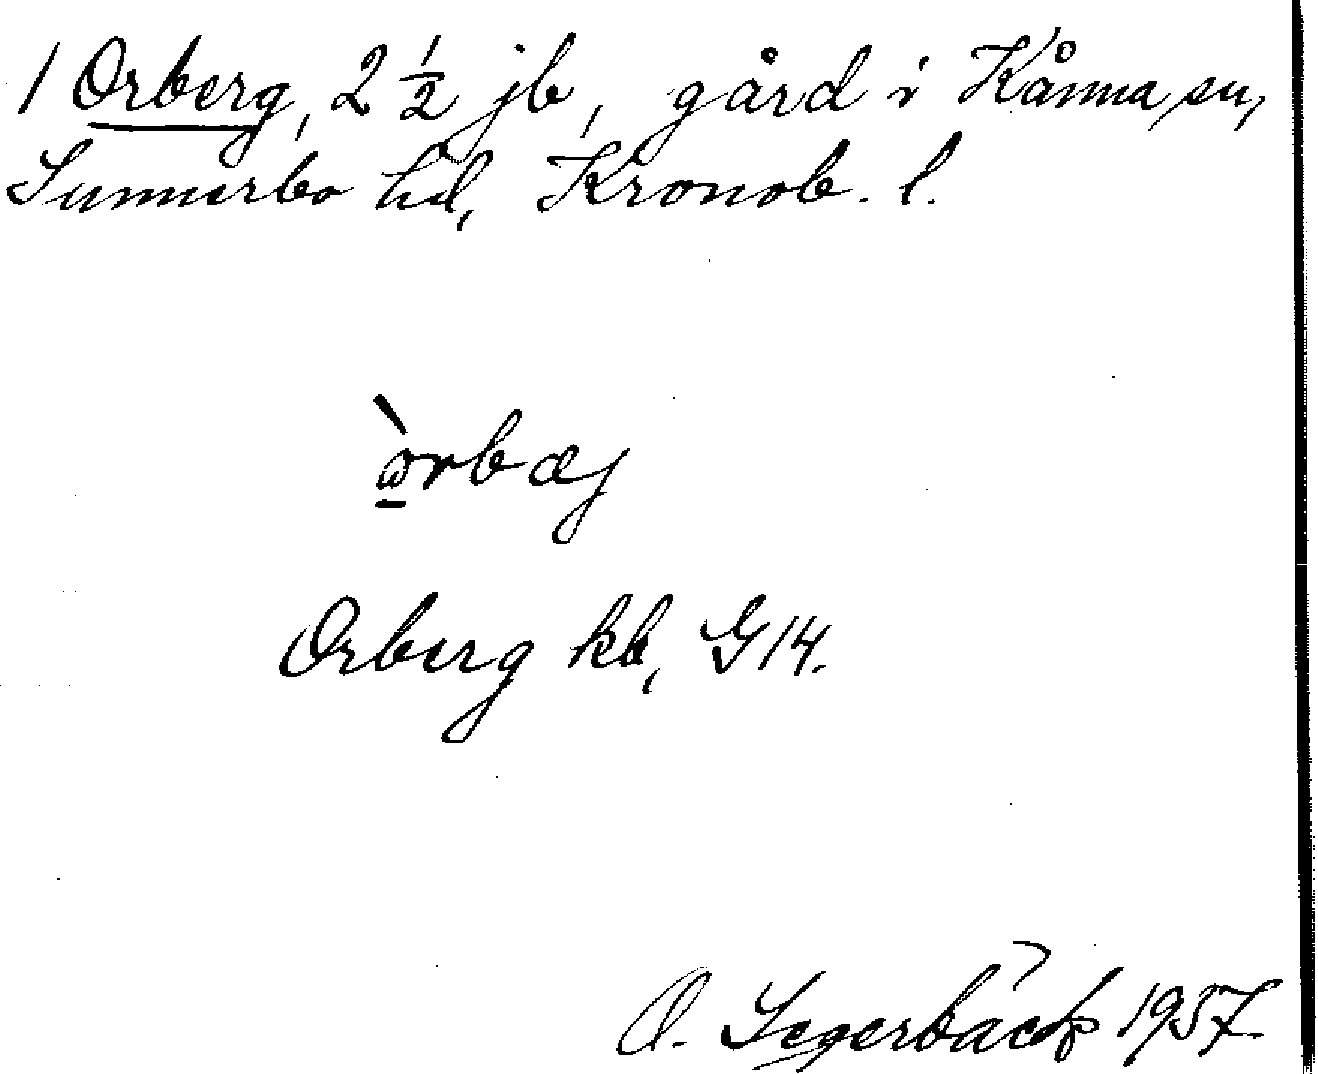 1 Orberg, 2 1/2 jb, gård i Kånna sn,
Sunnerbo hd, Kronob. l.
òrbæj
Orberg kb, G 14.
O. Segerbäck 1957.